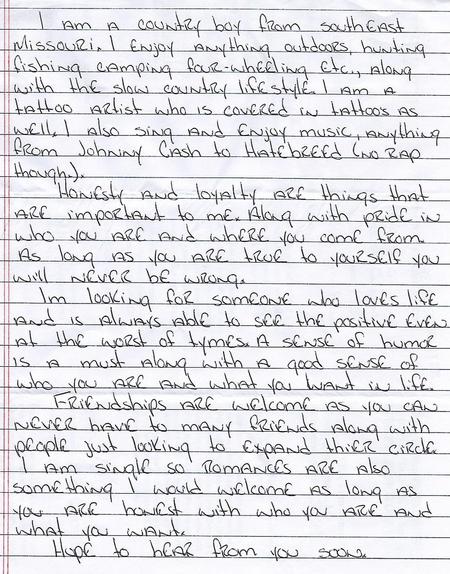 I am a country boy from southeast
Missouri. I enjoy anything outdoors, hunting
fishing camping four-wheeling etc., along
with the slow country lifestyle. I am a
tattoo artist who is covered in tattoos as
well. I also sing and enjoy music, anything
from Johnny Cash to Hatebreed (no rap
though.).
Honesty and loyalty are things that
are important to me. Along with pride in
who you are and where you come from.
As long as you are true to yourself you
will never be wrong.
Im looking for someone who loves life
and is always able to see the positive even
at the worst of tymes. A sense of humor
is a must along with a good sense of
who you are and what you want in life.
Friendships are welcome as you can
never have to many friends along with
people just looking to expand thier circle.
I am single so romances are also
something I would welcome as long as
you are honest with who you are and
what you want.
Hope to hear from you soon.